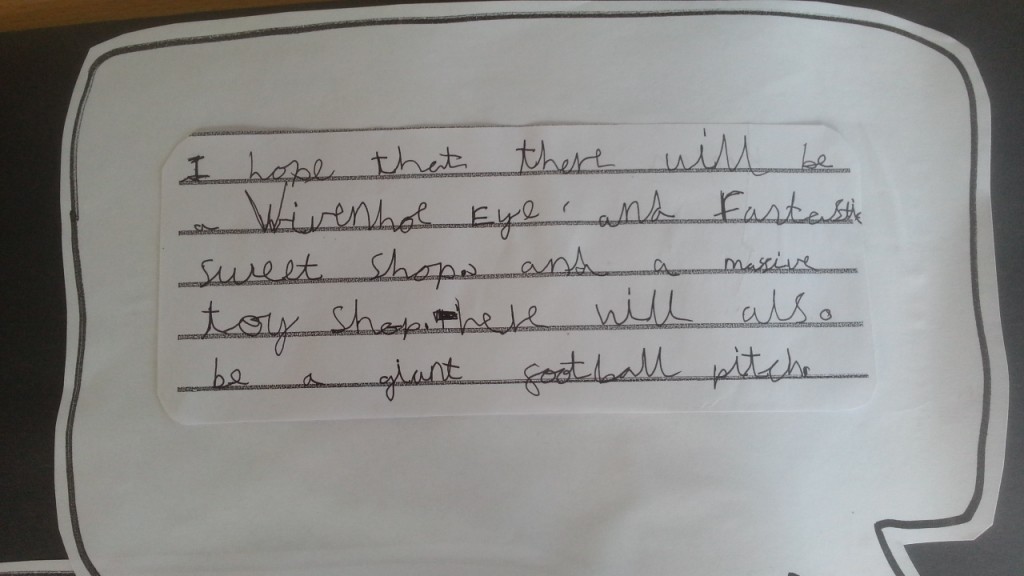 I hope that there will be
a Wivenhoe Eye, and Fantastic
sweet shop. and a massive
toy shop. There will also
be a giant football pitch.